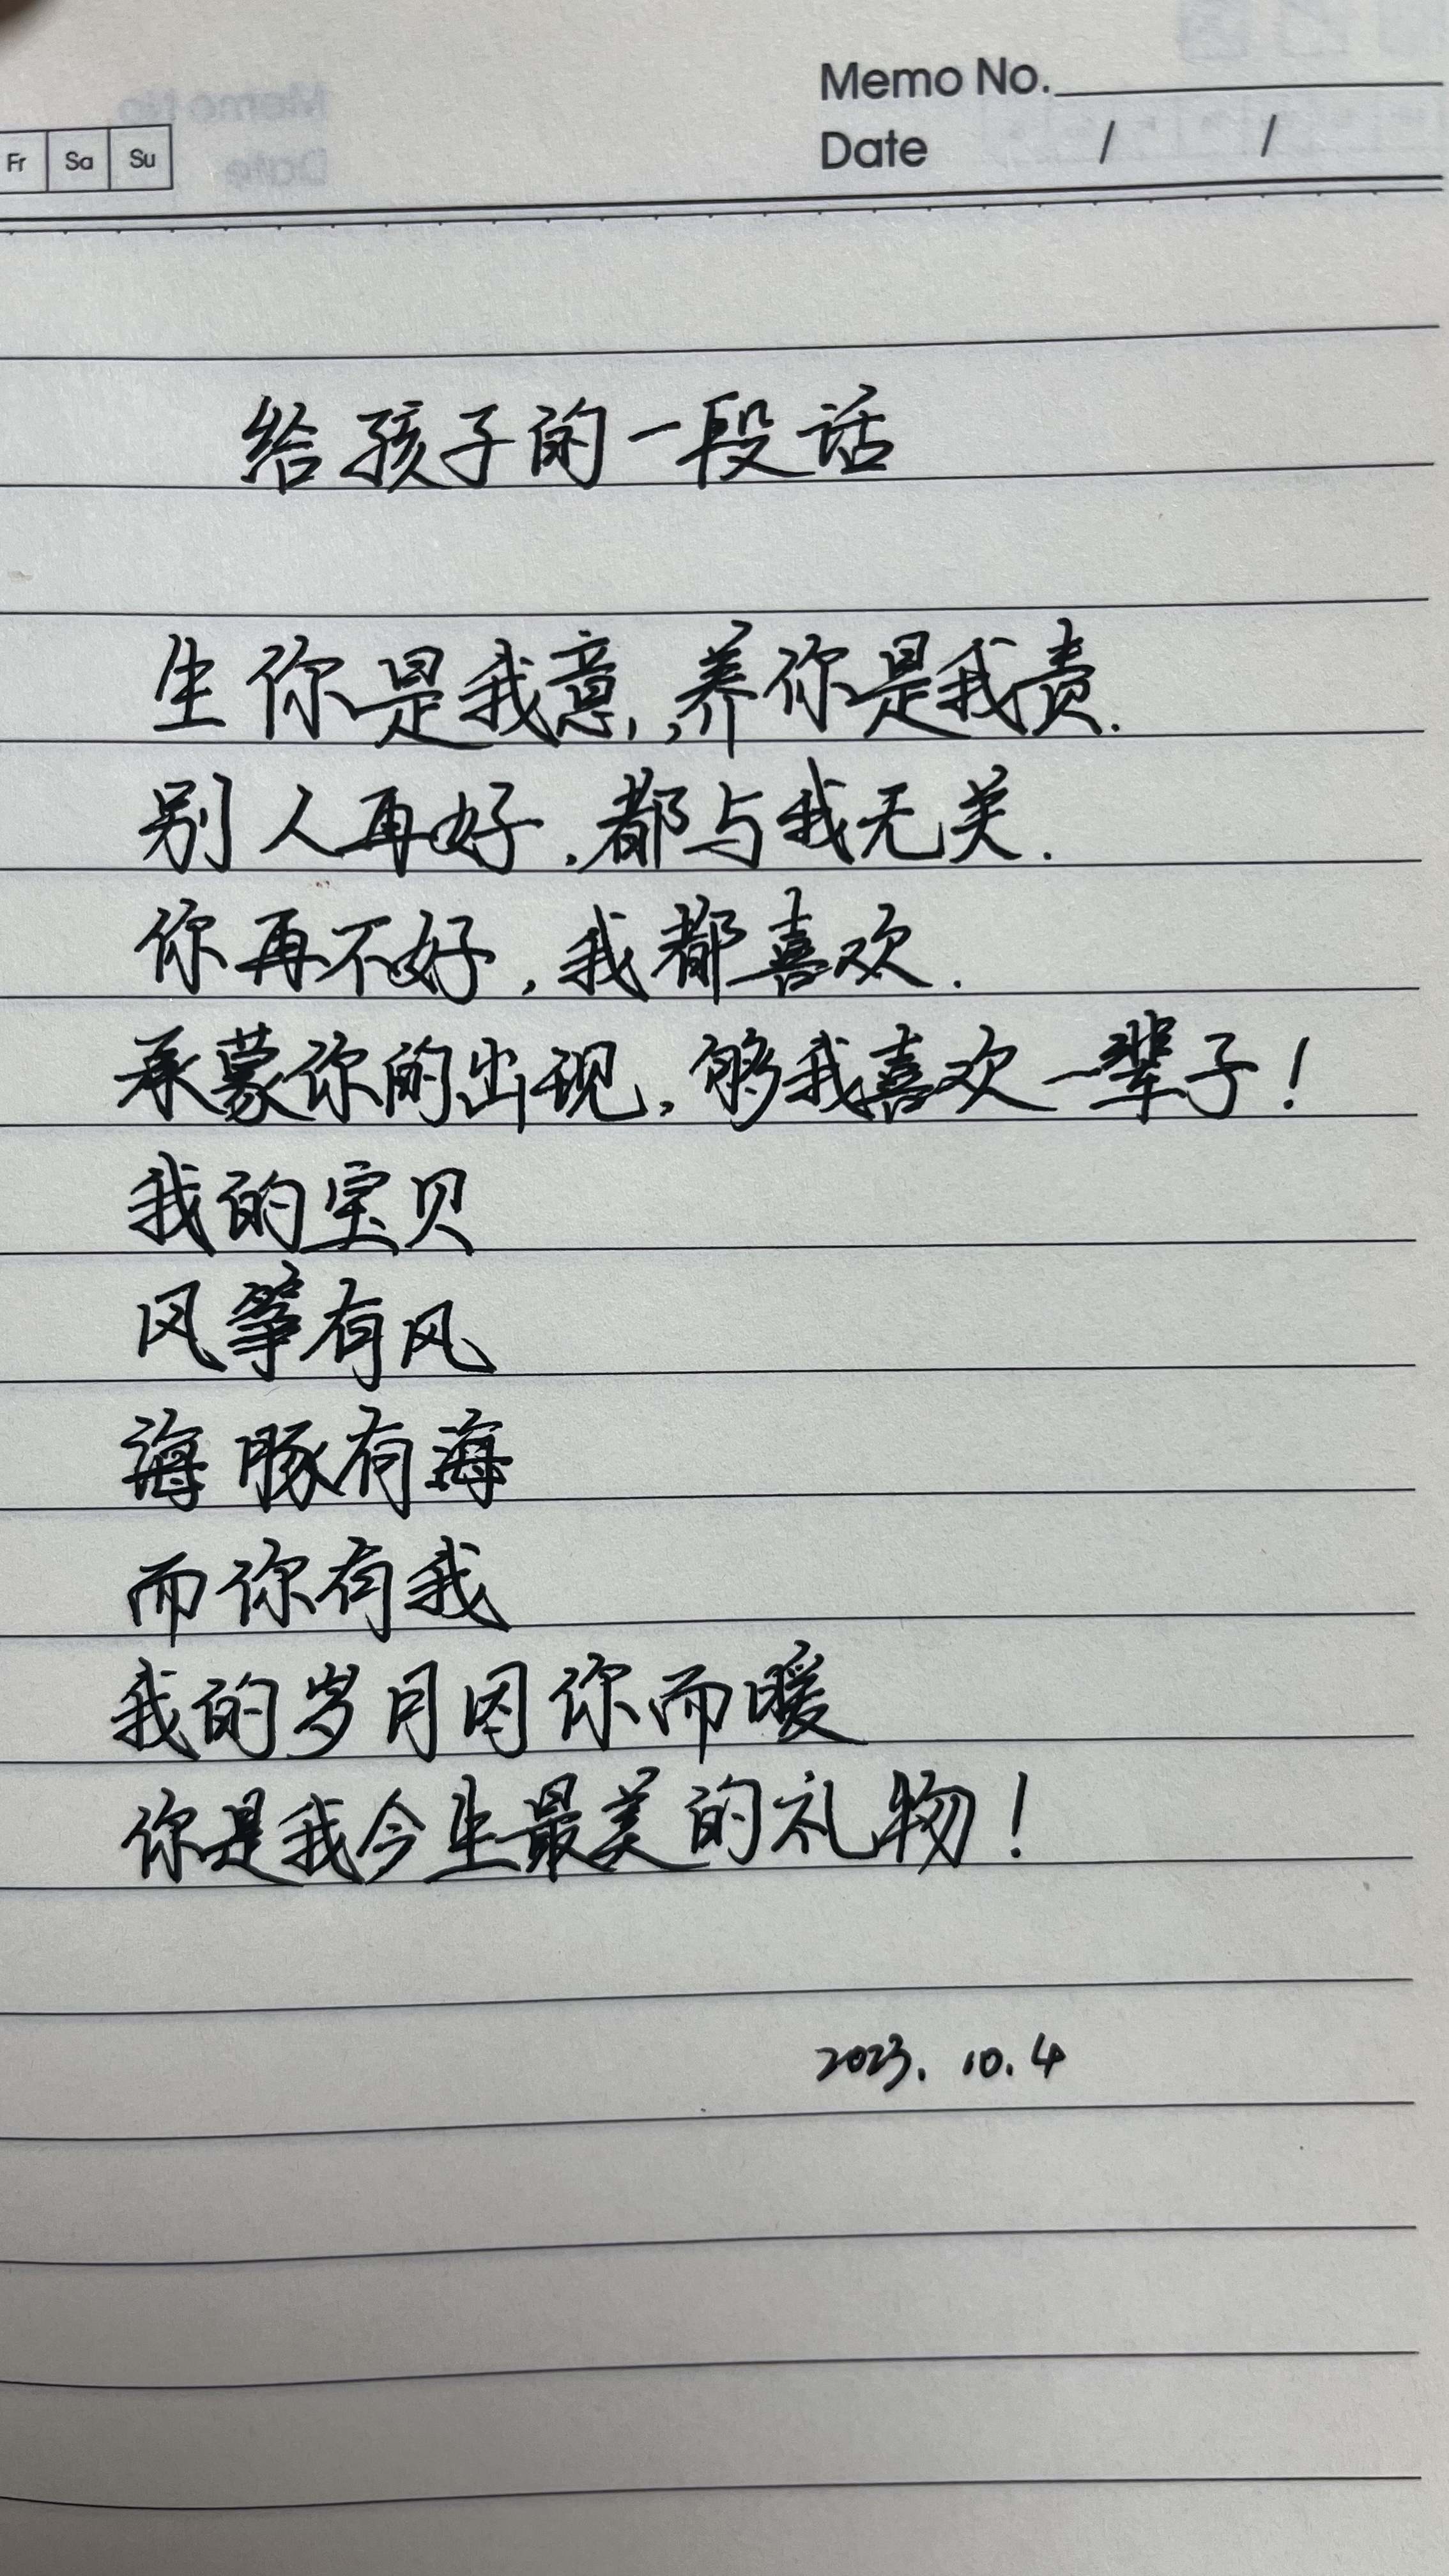 Memo No.
Fr Sa Su
Date / /
给孩子的一段话
生你是我意,养你是我责.
别人再好,都与我无关.
你再不好,我都喜欢.
承蒙你的出现,够我喜欢一辈子!
我的宝贝
风筝有风
海豚有海
而你有我
我的岁月因你而暖
你是我今生最美的礼物!
2023.10.4